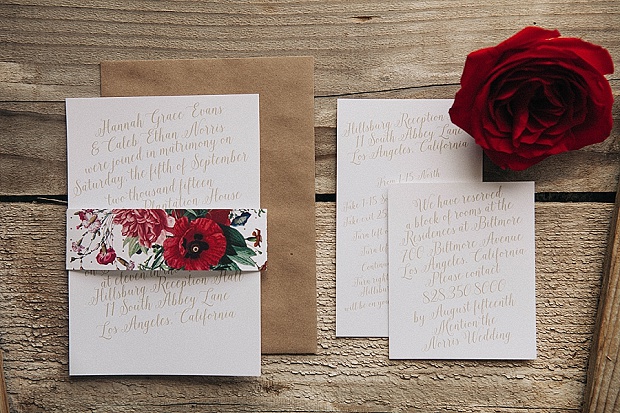 Hannah Grace Evans
& Caleb Ethan Norris
were joined in matrimony on
Saturday the fifth of September
two thousand fifteen
Plantation House
at eleven
Hillsburg Reception Hall
11 South Abbey Lane
Los Angeles, California
Hillsburg Reception
11 South Abbey Lane
Los Angeles, California
From 1-15 North
Take 1-15
Take exit
Turn left
Turn left
Continue
Turn right
Hillsburg
will be on
We have reserved
a block of rooms at the
Residences at Biltmore
700 Biltmore Avenue
Los Angeles, California
Please contact
828.350.8000
by August fifteenth
Mention the
Norris Wedding